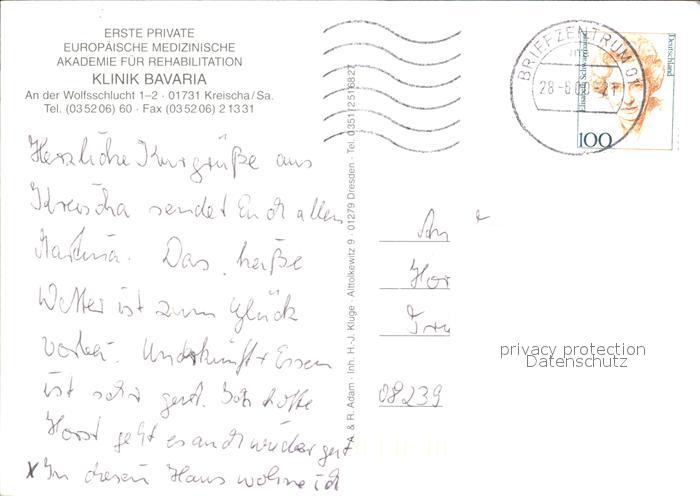 ERSTE PRIVATE
EUROPÄISCHE MEDIZINISCHE
AKADEMIE FÜR REHABILITATION
KLINIK BAVARIA
An der Wolfsschlucht 1–2 · 01731 Kreischa/Sa.
Tel. (03 52 06) 60 · Fax (03 52 06) 2 13 31
Herzliche Kurgrüße aus
Kreischa sendet Euch allen
Martina. Das heiße
Wetter ist zum Glück
vorbei. Unterkunft + Essen
ist sehr gut. Ich hoffe
Horst geht es auch wieder gut
X In diesem Haus wohne ich
A. & R. Adam · Inh. H.-J. Kluge · Alttolkewitz 9 · 01279 Dresden · Tel. 0351/2516827
BRIEFZENTRUM 01
28-6.00-21
Deutschland
100
An
Hor
08239
privacy protection
Datenschutz